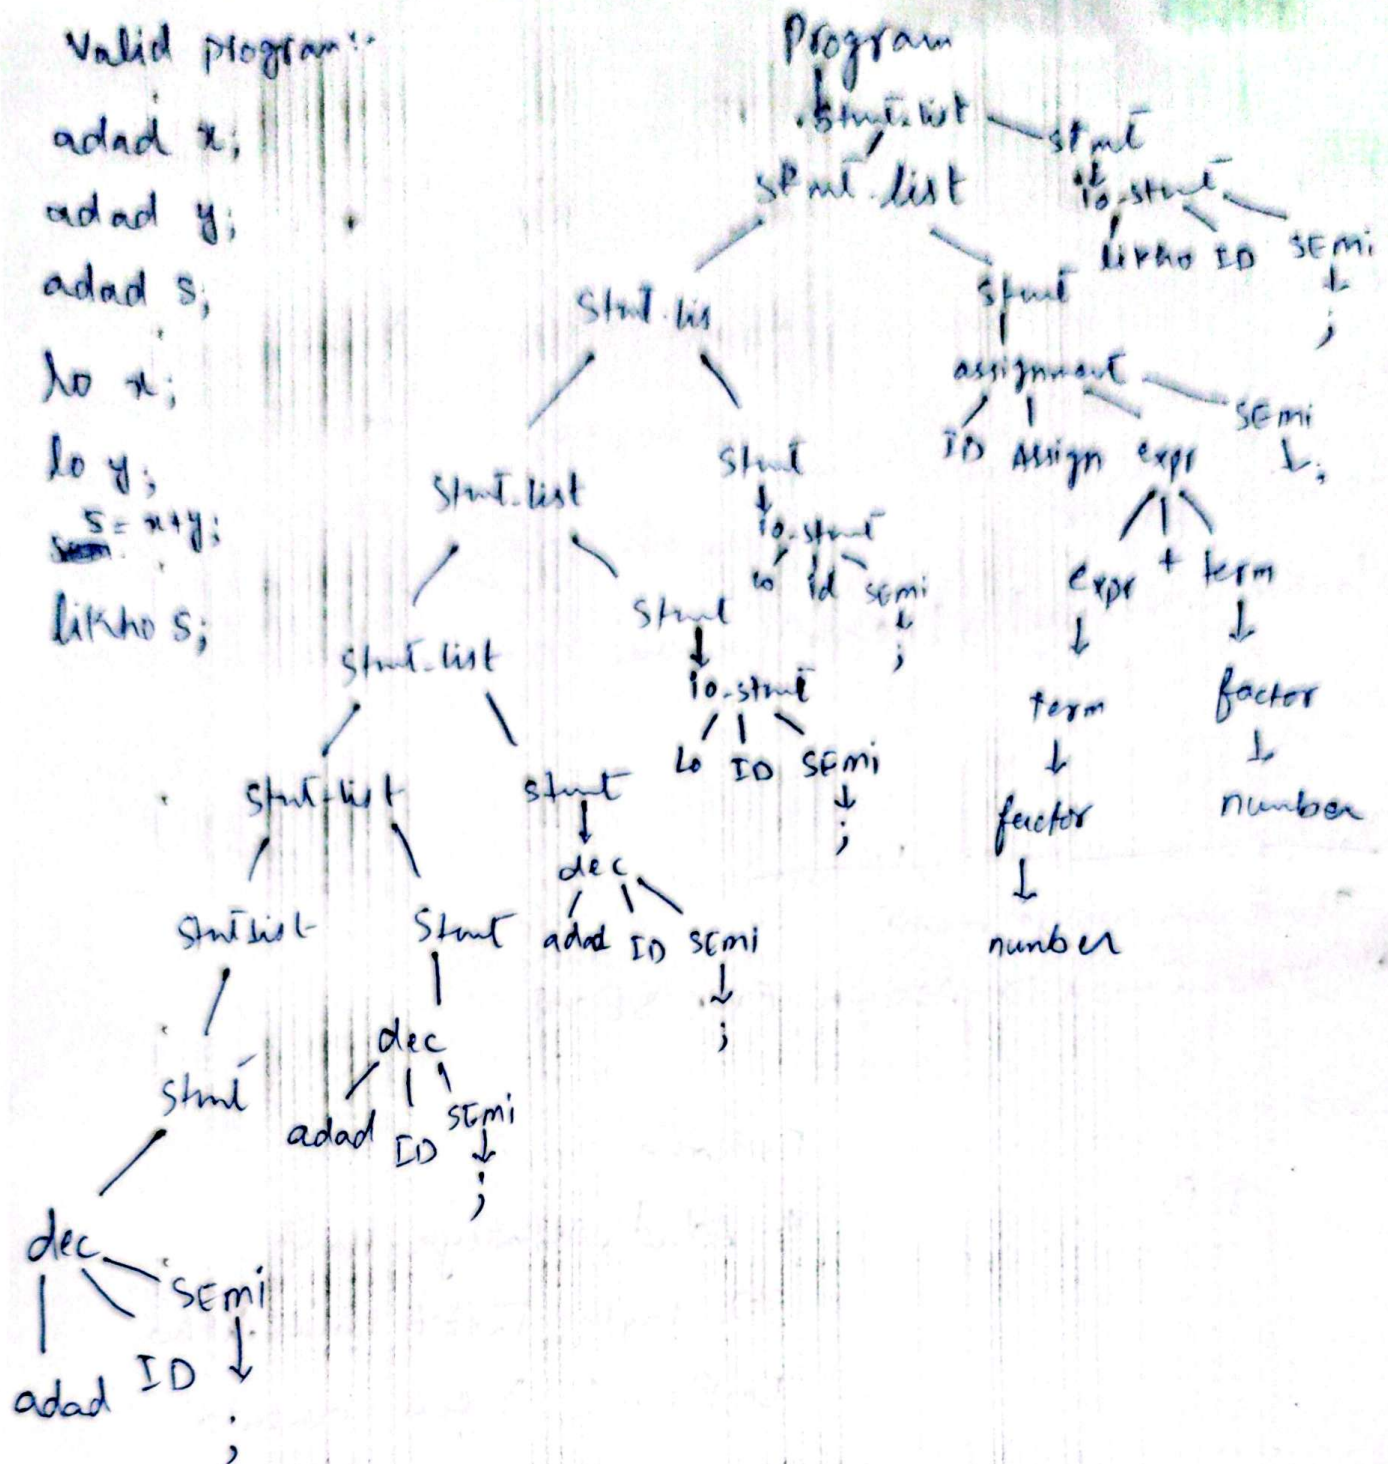 Valid program:-
adad x;
adad y;
adad s;
lo x;
lo y;
s = x+y;
likho s;
Program
stmt-list
stmt
stmt-list
io-stmt
likho ID SEmi
;
stmt-lis
stmt
assignment
ID Assign expr SEmi
;
expr + term
term factor
factor number
number
stmt-list
stmt
io-stmt
lo id SEmi
;
stmt-list
stmt
io-stmt
Lo ID SEmi
;
stmt-list
stmt
dec
adad ID SEmi
;
stmtlist
stmt
dec
adad ID SEmi
;
stmt
dec
adad ID SEmi
;